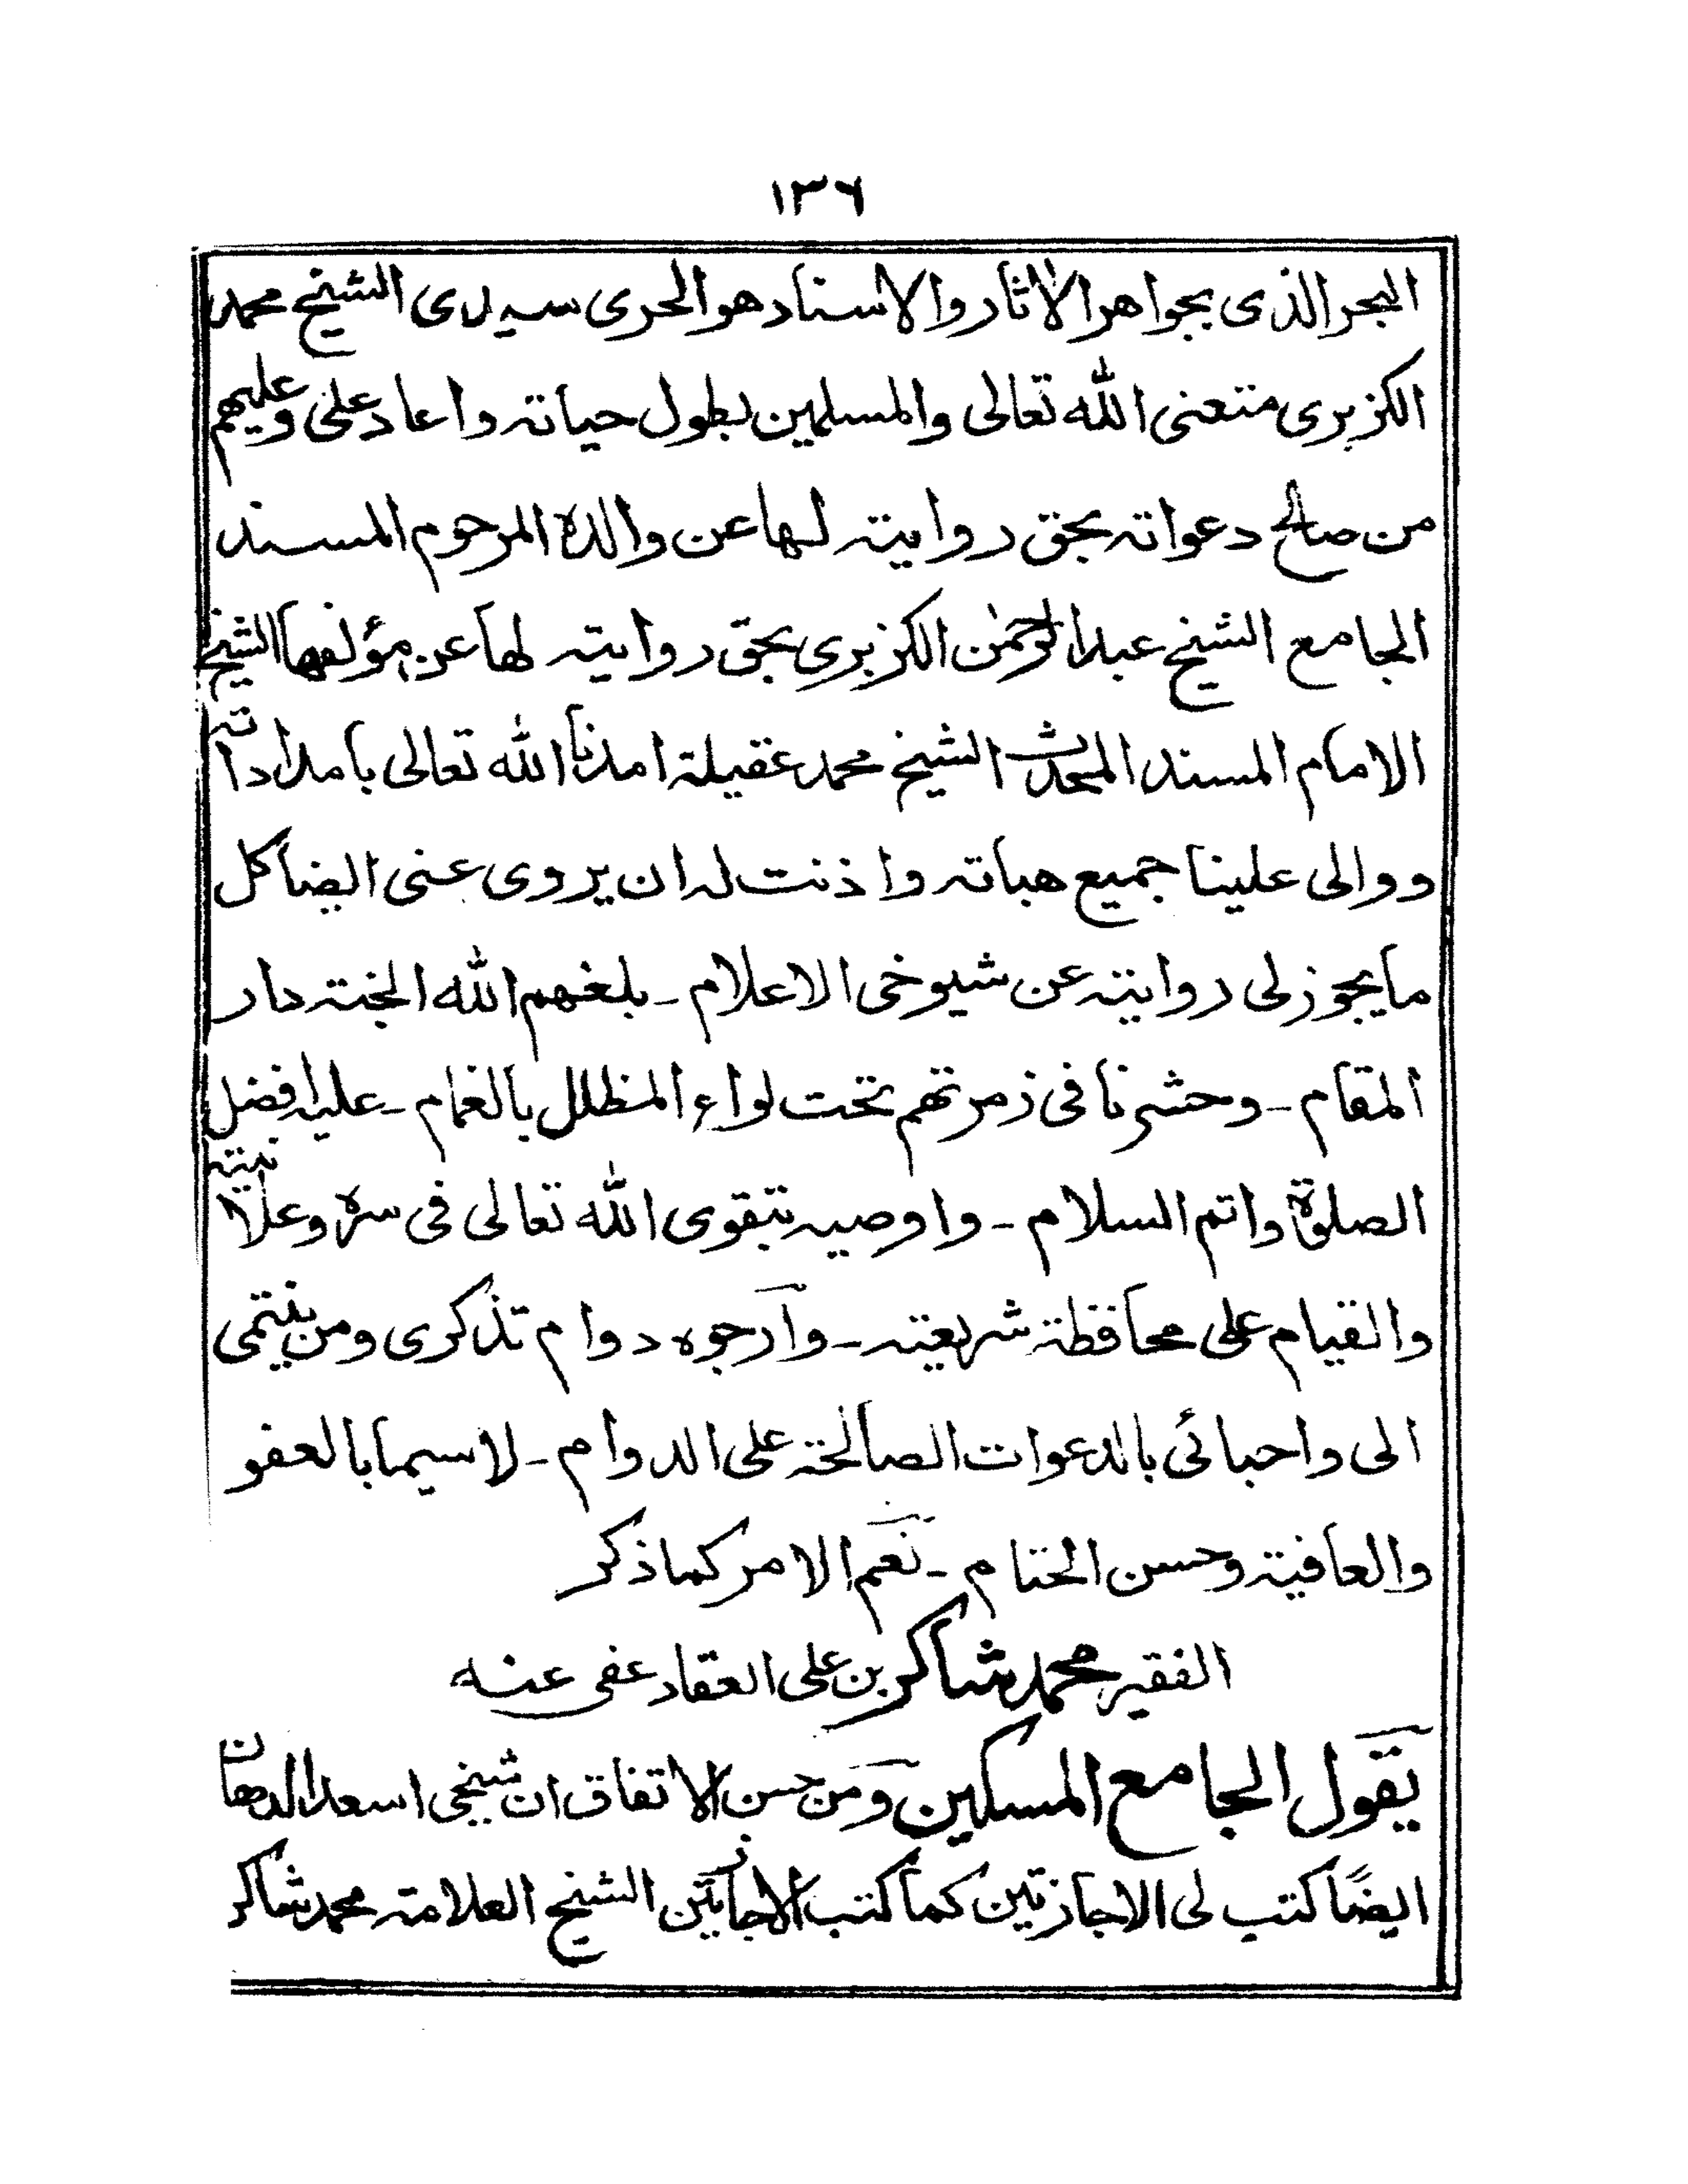 ١٣٦
البحر الذى بجواهر الاثار والاسناد هو الحرى سيدى الشيخ محمد
الكزبرى متعنى الله تعالى والمسلمين بطول حياته واعاد على وعليهم
من صالح دعواته بحق روايته لها عن والده المرحوم المسند
الجامع الشيخ عبد الرحمٰن الكزبرى بحق روايته لها عن مؤلفها الشيخ
الامام المسند المحدث الشيخ محمد عقيلة امدنا الله تعالى بامداداته
ووالى علينا جميع هباته واذنت له ان يروى عنى ايضا كل
ما يجوز لى روايته عن شيوخى الاعلام - بلغهم الله الجنة دار
المقام - وحشرنا فى زمرتهم تحت لواء المظلل بالغمام - عليه افضل
الصلوة واتم السلام - واوصيه بتقوى الله تعالى فى سره وعلانيته
والقيام على محافظة شريعته - وارجوه دوام تذكرى ومن ينتمى
الى واحبائى بالدعوات الصالحة على الدوام - لاسيما بالعفو
والعافية وحسن الختام - نعم الامر كما ذكر
الفقير محمد شاكر بن على العقاد عفى عنه
يقول الجامع المسكين ومن حسن الاتفاق ان شيخى اسعد الدهان
ايضًا كتب لى الاجازتين كما كتب الاجازتين الشيخ العلامة محمد شاكر